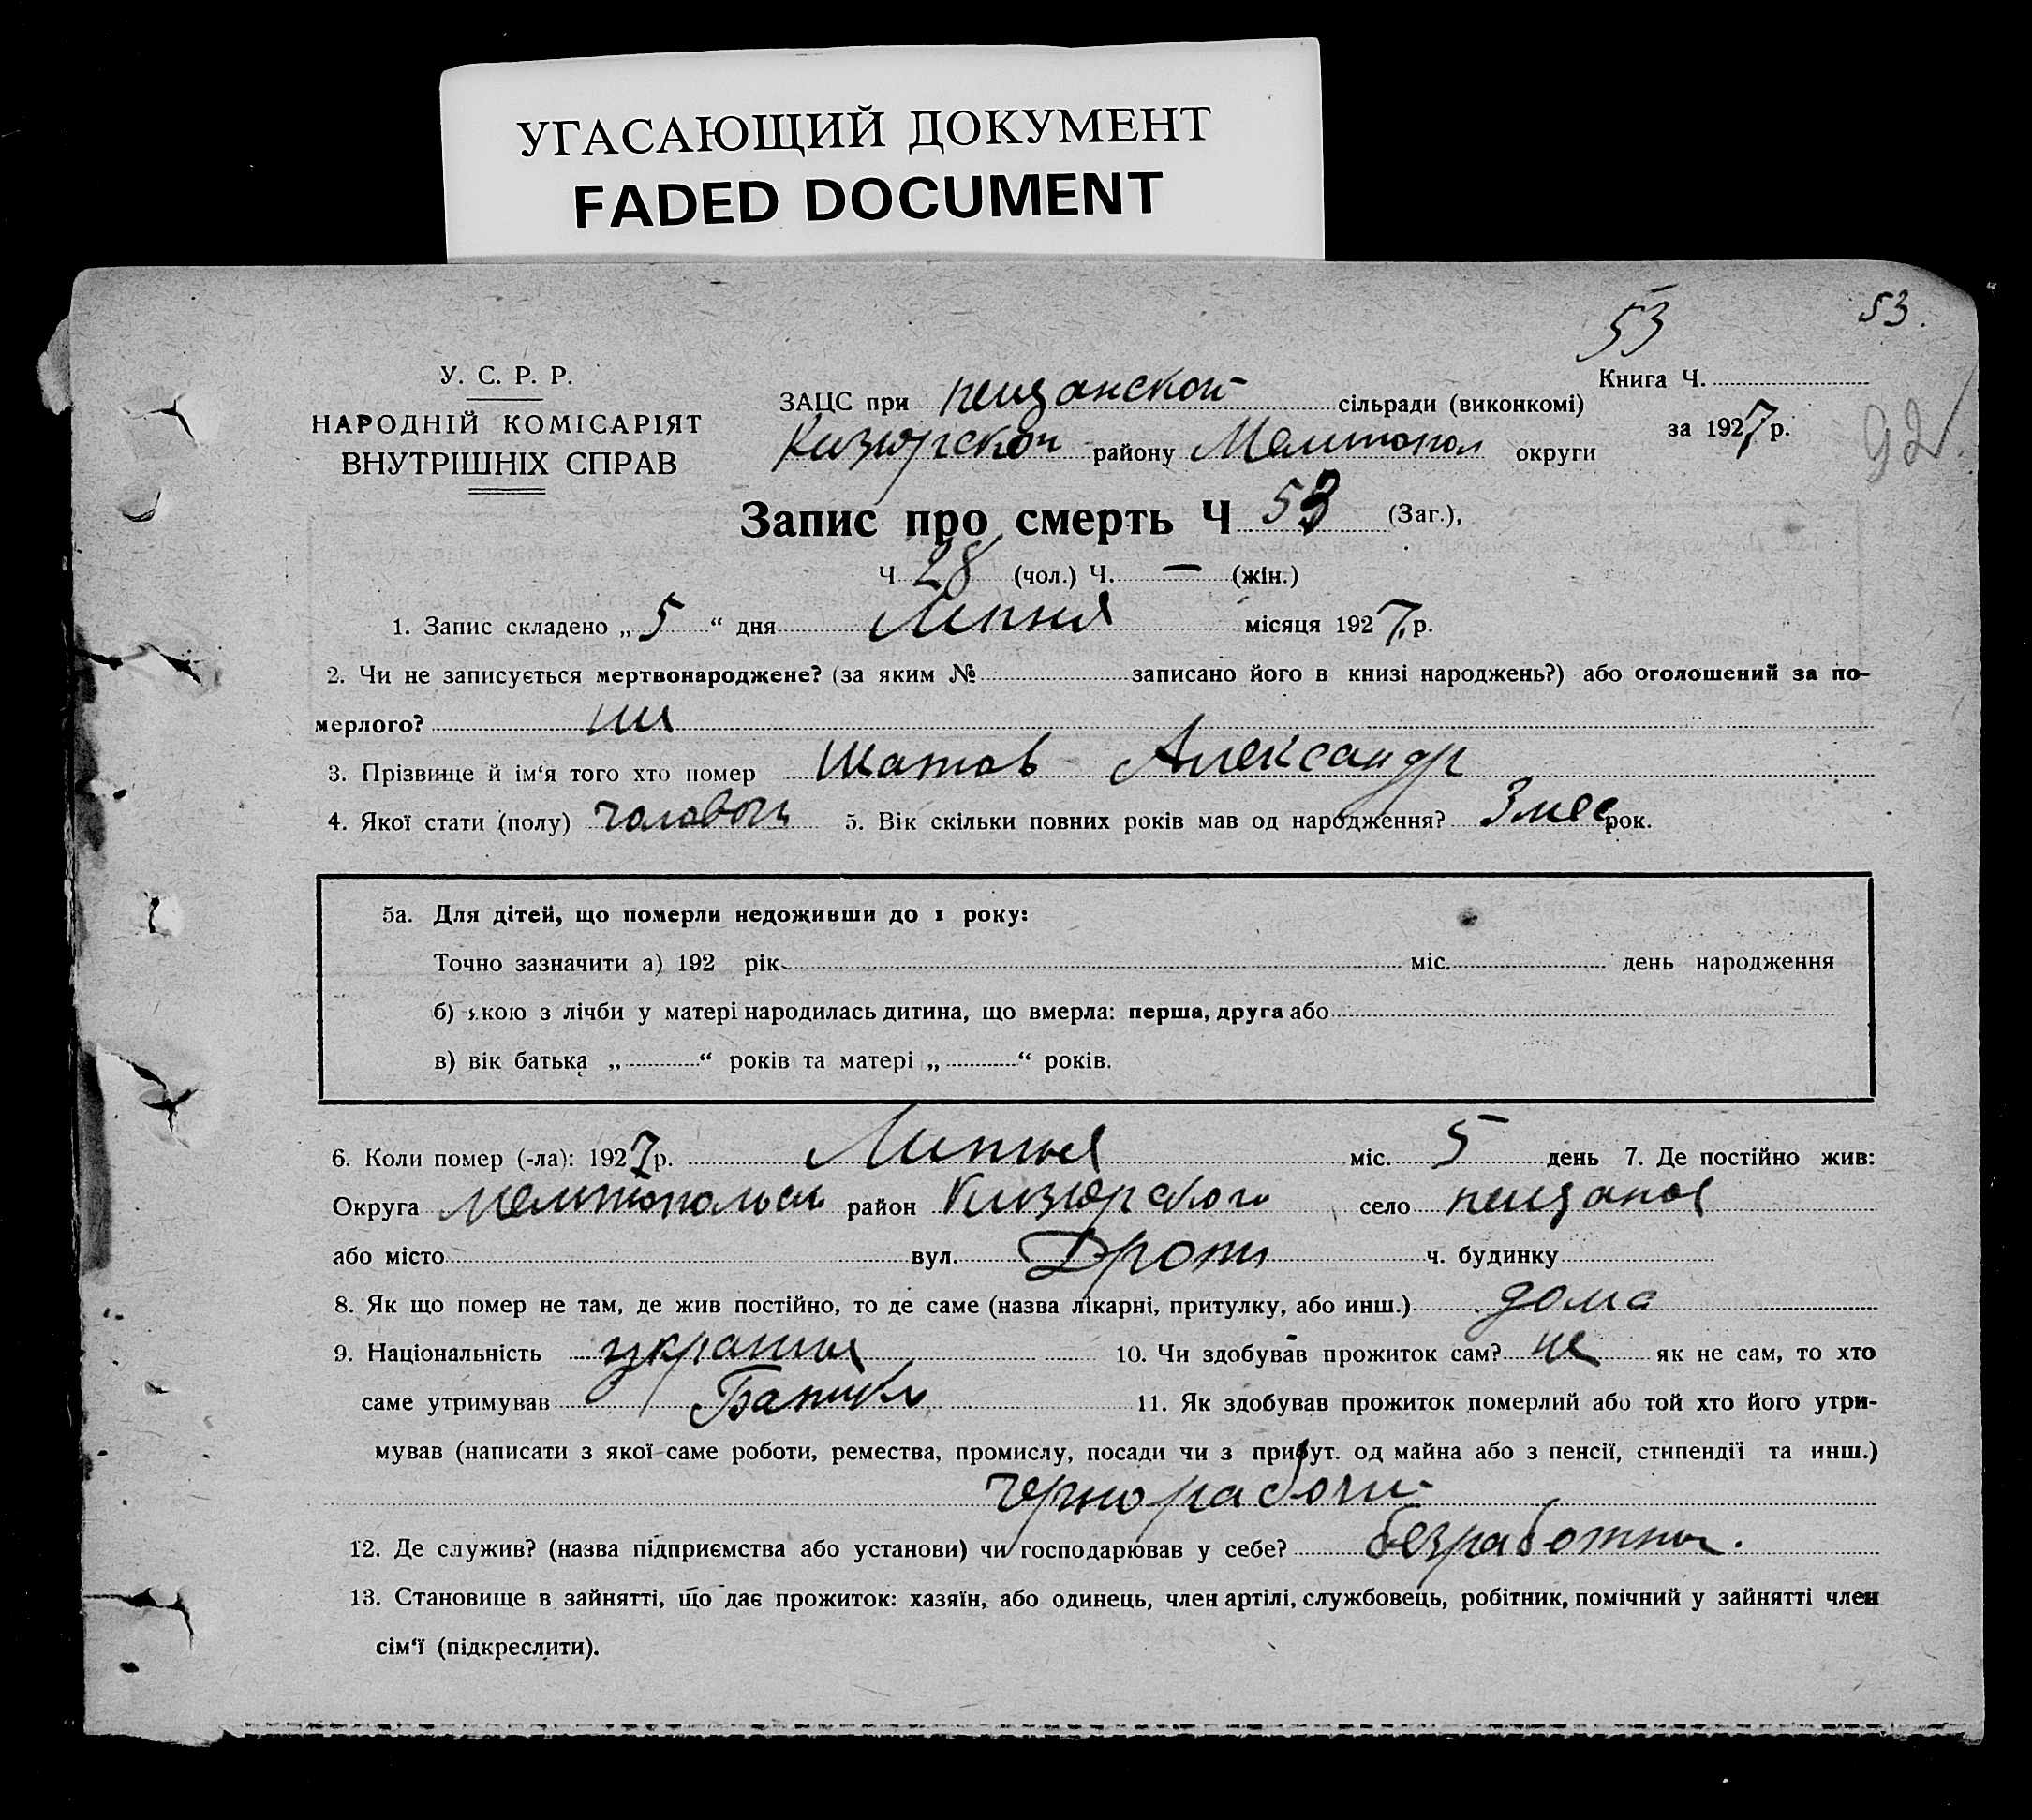 УГАСАЮЩИЙ ДОКУМЕНТ
FADED DOCUMENT
53 53.
У. С. Р. Р.
НАРОДНІЙ КОМІСАРІЯТ
ВНУТРІШНІХ СПРАВ
Книга Ч.
ЗАЦС при пещанской сільради (виконкомі)
за 1927 р.
92
Кизюрской району Мелитопол округи
Запис про смерть Ч 53 (Заг.),
Ч 28 (чол.) Ч. — (жін.)
1. Запис складено „ 5 “ дня Липня місяця 1927 р.
2. Чи не записується мертвонароджене? (за яким № записано його в книзі народжень?) або оголошений за по-
мерлого?
3. Прізвище й ім‘я того хто помер Шатов Александр
4. Якої стати (полу) 5. Вік скільки повних років мав од народження? 3 мес рок.
5а. Для дітей, що померли недоживши до 1 року:
Точно зазначити а) 192 рік міс. день народження
б) якою з лічби у матері народилась дитина, що вмерла: перша, друга або
в) вік батька „ “ років та матері „ “ років.
6. Коли помер (-ла): 1927 р. Липня міс. 5 день 7. Де постійно жив:
Округа район Кизюрского село
або місто вул. ч. будинку
8. Як що помер не там, де жив постійно, то де саме (назва лікарні, притулку, або инш.) дома
9. Національність 10. Чи здобував прожиток сам? не як не сам, то хто
саме утримував Батько 11. Як здобував прожиток померлий або той хто його утри-
мував (написати з якої саме роботи, ремества, промислу, посади чи з прибут. од майна або з пенсії, стипендії та инш.)
чернорабочи
12. Де служив? (назва підприємства або установи) чи господарював у себе? безработны.
13. Становище в зайнятті, що дає прожиток: хазяїн, або одинець, член артілі, службовець, робітник, помічний у зайнятті член
сім‘ї (підкреслити).